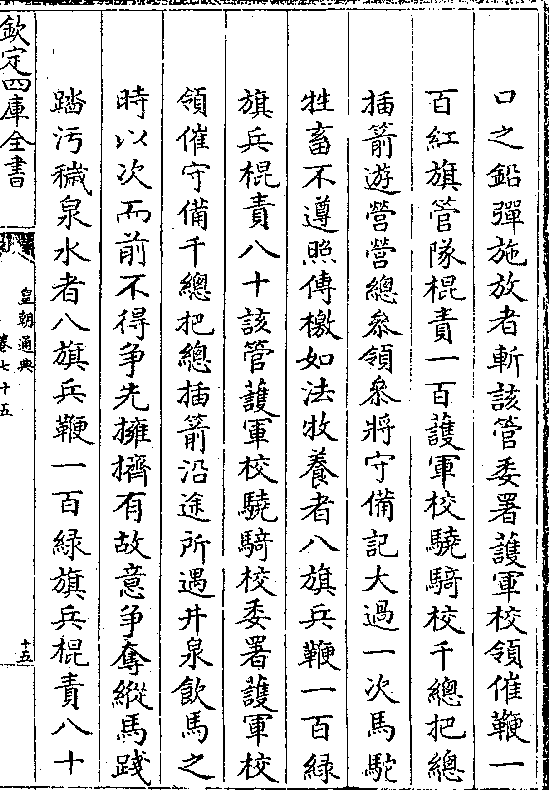 口之鉛彈施放者斬該管委署護軍校領催鞭一
百紅旗管隊棍責一百護軍校驍騎校千總把總
插箭遊營營總叅領叅將守備記大過一次馬駝
牲畜不遵照傳檄如法牧養者八旗兵鞭一百緑
旗兵棍責八十該管護軍校驍騎校委署護軍校
領催守備千總把總插箭沿途所遇井泉飲馬之
時以次而前不得争先擁擠有故意争奪縱馬踐
踏汚穢泉水者八旗兵鞭一百緑旗兵棍責八十
欽定四庫全書
皇朝通典
卷七十五
十五